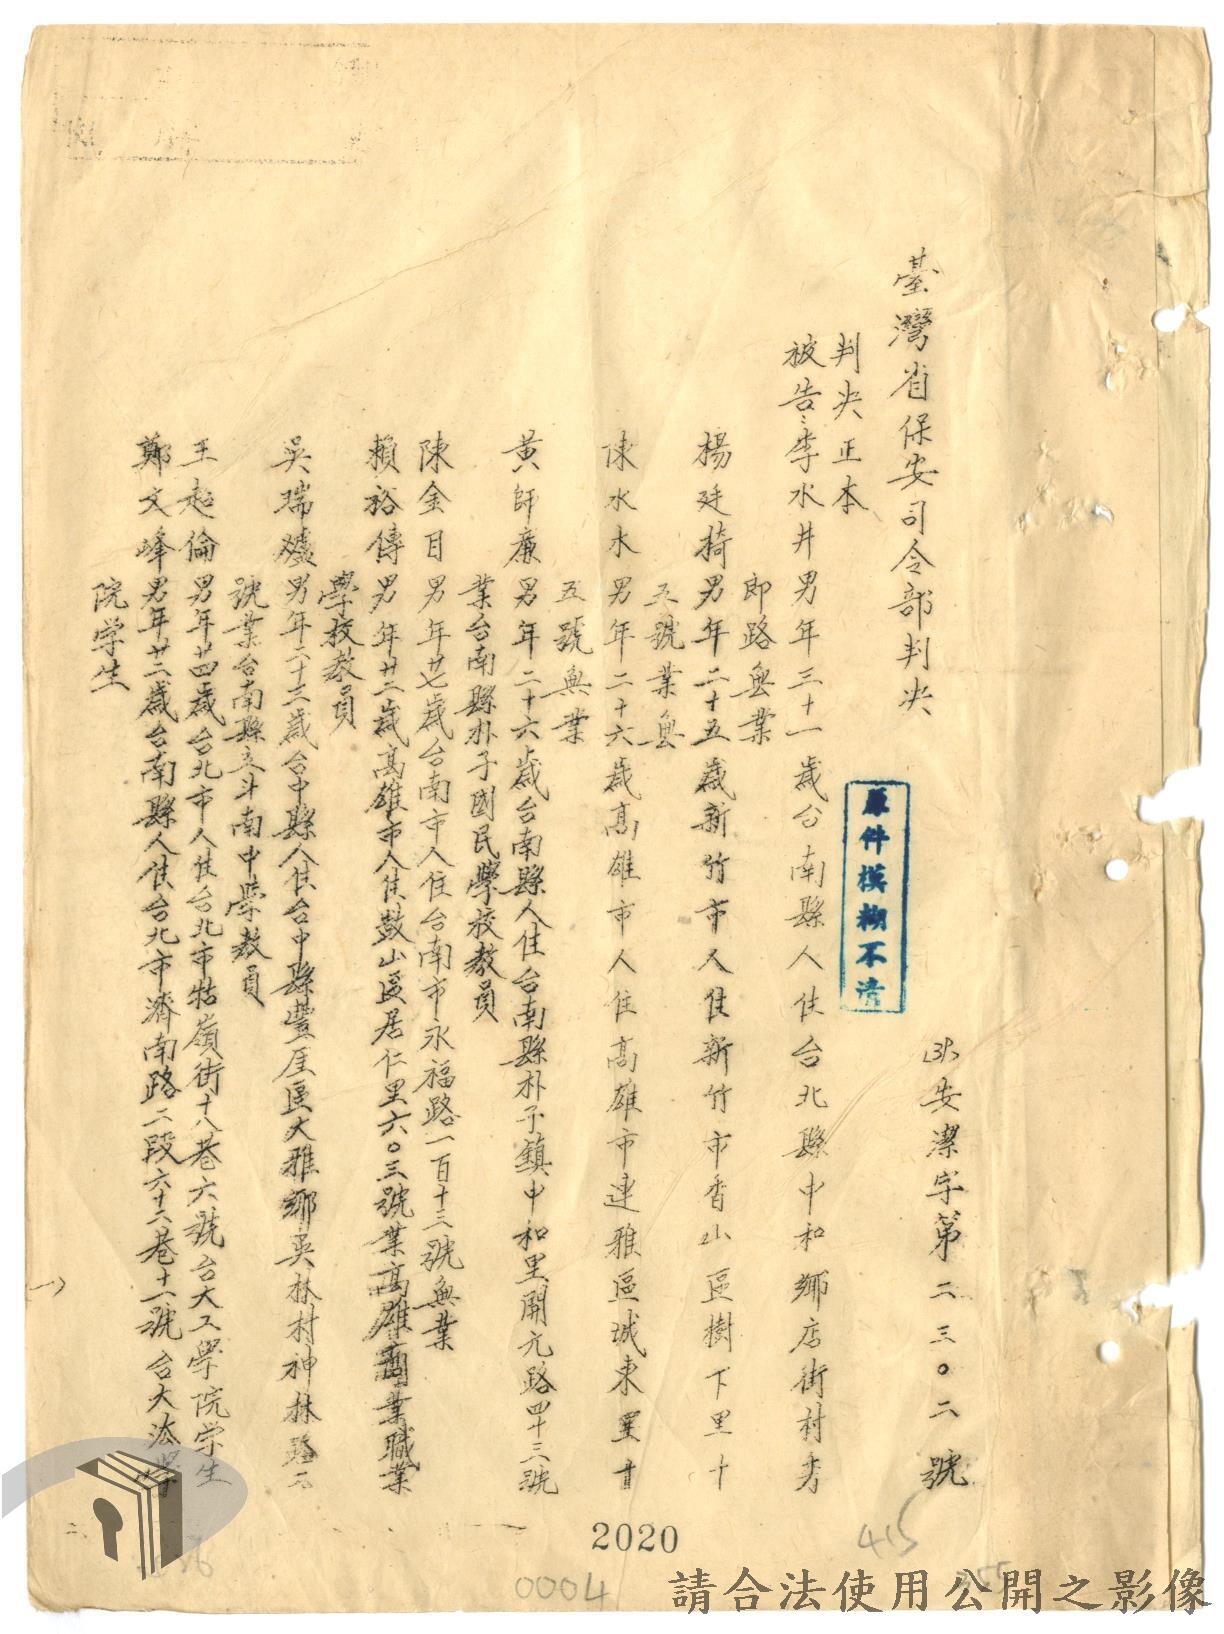 臺灣省保安司令部判決
(39)安潔字第二三〇二號
判決正本
原件模糊不清
被告:李水井男年三十一歲台南縣人住台北縣中和鄉店街村秀
即路無業
楊廷椅男年二十五歲新竹市人住新竹市香山區樹下里十
五號業無
陳水木男年二十六歲高雄市人住高雄市連雅區城東里廿
五號無業
黃師廉男年二十六歲台南縣人住台南縣朴子鎮中和里開元路四十三號
業台南縣朴子國民學校教員
陳金目男年廿七歲台南市人住台南市永福路一百十三號無業
賴裕傳男年廿二歲高雄市人住鼓山區居仁里六〇三號業高雄商業職業
學校教員
吳瑞爐男年二十三歲台中縣人住台中縣豐原區大雅鄉吳林村神林路二
號業台南縣立斗南中學教員
王超倫男年廿四歲台北市人住台北市牯嶺街十八巷六號台大工學院学生
鄭文峰男年廿二歲台南縣人住台北市濟南路二段六十六巷十一號台大法學
院学生
(一)
2020
0004
415
請合法使用公開之影像